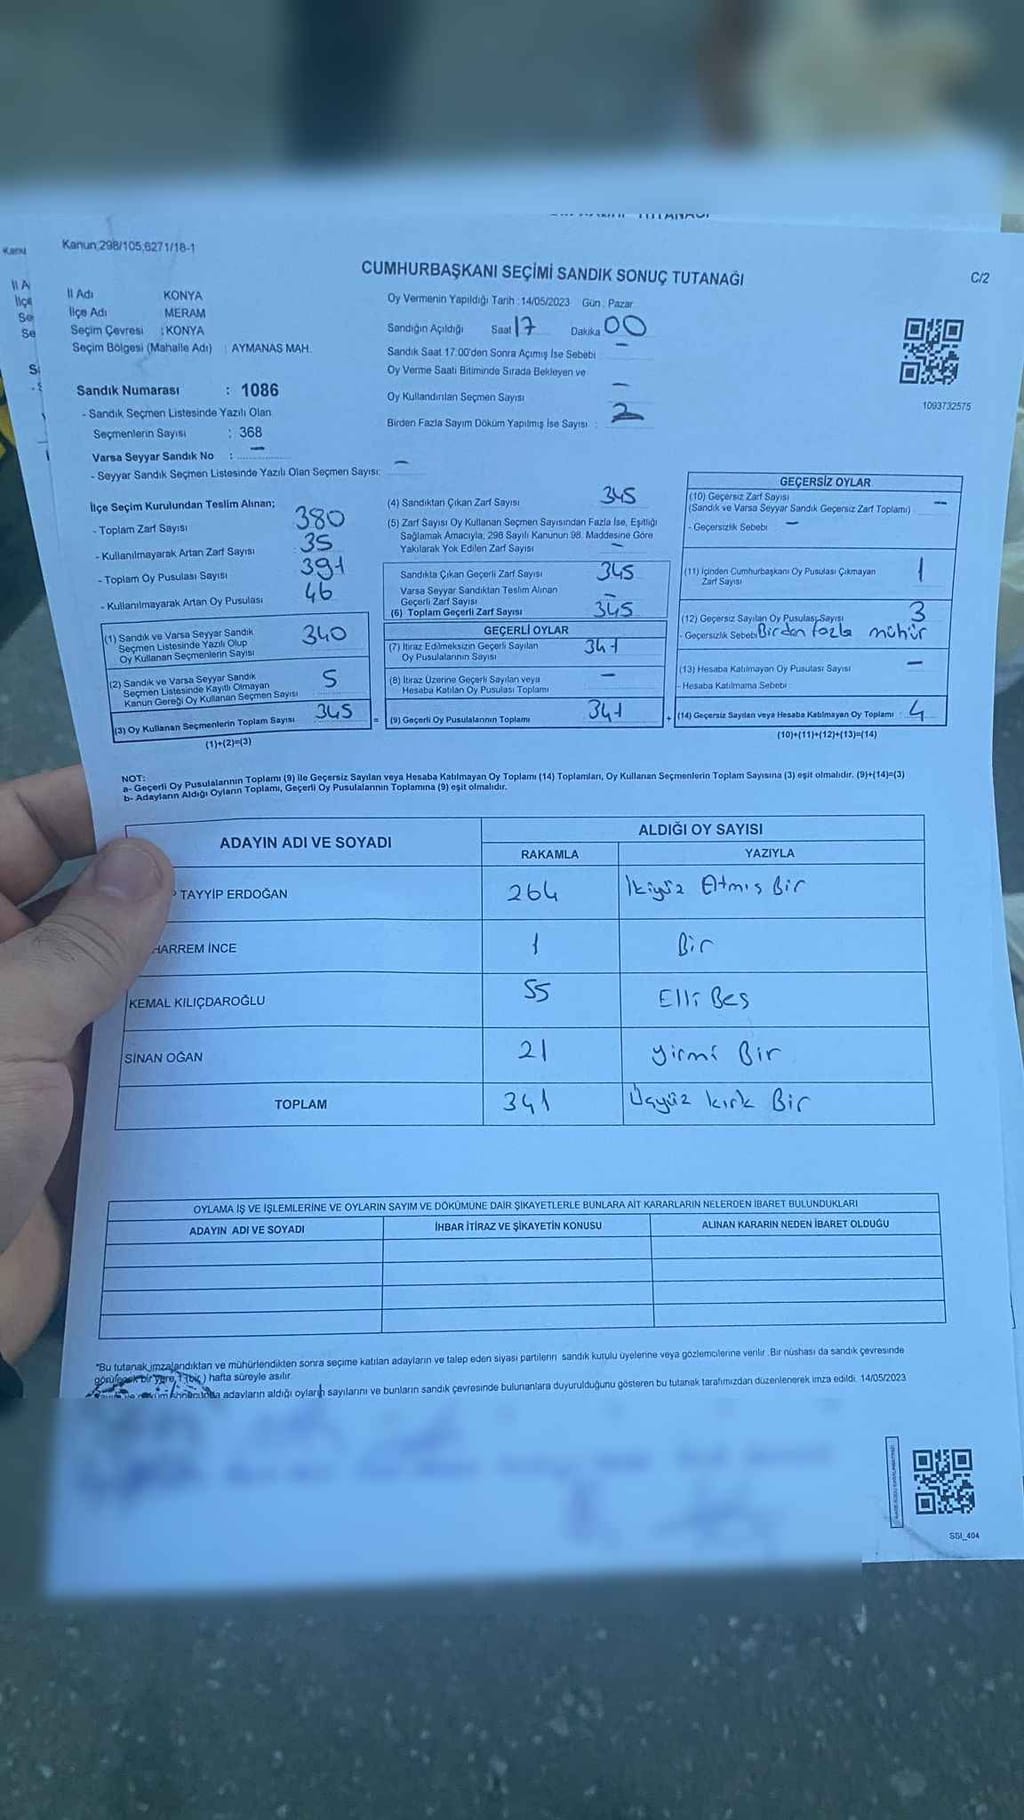 Kanun;298/105,6271/18-1
CUMHURBAŞKANI SEÇİMİ SANDIK SONUÇ TUTANAĞI
C/2
İl Adı KONYA
İlçe Adı MERAM
Seçim Çevresi : KONYA
Seçim Bölgesi (Mahalle Adı) : AYMANAS MAH.
Sandık Numarası : 1086
- Sandık Seçmen Listesinde Yazılı Olan
Seçmenlerin Sayısı : 368
Varsa Seyyar Sandık No : —
- Seyyar Sandık Seçmen Listesinde Yazılı Olan Seçmen Sayısı: —
Oy Vermenin Yapıldığı Tarih :14/05/2023 Gün : Pazar
Sandığın Açıldığı Saat 17 Dakika 00
Sandık Saat 17:00'den Sonra Açımış İse Sebebi —
Oy Verme Saati Bitiminde Sırada Bekleyen ve
Oy Kullandırılan Seçmen Sayısı —
Birden Fazla Sayım Döküm Yapılmış İse Sayısı : 2
1093732575
İlçe Seçim Kurulundan Teslim Alınan;
- Toplam Zarf Sayısı 380
- Kullanılmayarak Artan Zarf Sayısı 35
- Toplam Oy Pusulası Sayısı 391
- Kullanılmayarak Artan Oy Pusulası 46
(1) Sandık ve Varsa Seyyar Sandık
Seçmen Listesinde Yazılı Olup
Oy Kullanan Seçmenlerin Sayısı 340
(2) Sandık ve Varsa Seyyar Sandık
Seçmen Listesinde Kayıtlı Olmayan
Kanun Gereği Oy Kullanan Seçmen Sayısı 5
(3) Oy Kullanan Seçmenlerin Toplam Sayısı 345
(1)+(2)=(3)
(4) Sandıktan Çıkan Zarf Sayısı 345
(5) Zarf Sayısı Oy Kullanan Seçmen Sayısından Fazla İse, Eşitliği
Sağlamak Amacıyla, 298 Sayılı Kanunun 98. Maddesine Göre
Yakılarak Yok Edilen Zarf Sayısı —
Sandıkta Çıkan Geçerli Zarf Sayısı 345
Varsa Seyyar Sandıktan Teslim Alınan
Geçerli Zarf Sayısı —
(6) Toplam Geçerli Zarf Sayısı 345
GEÇERLİ OYLAR
(7) İtiraz Edilmeksizin Geçerli Sayılan
Oy Pusulalarının Sayısı 341
(8) İtiraz Üzerine Geçerli Sayılan veya
Hesaba Katılan Oy Pusulası Toplamı —
= (9) Geçerli Oy Pusulalarının Toplamı 341
GEÇERSİZ OYLAR
(10) Geçersiz Zarf Sayısı
(Sandık ve Varsa Seyyar Sandık Geçersiz Zarf Toplamı) —
- Geçersizlik Sebebi —
(11) İçinden Cumhurbaşkanı Oy Pusulası Çıkmayan
Zarf Sayısı 1
(12) Geçersiz Sayılan Oy Pusulası Sayısı 3
- Geçersizlik Sebebi Birden fazla mühür
(13) Hesaba Katılmayan Oy Pusulası Sayısı —
- Hesaba Katılmama Sebebi :
+ (14) Geçersiz Sayılan veya Hesaba Katılmayan Oy Toplamı 4
(10)+(11)+(12)+(13)=(14)
NOT:
a- Geçerli Oy Pusulalarının Toplamı (9) ile Geçersiz Sayılan veya Hesaba Katılmayan Oy Toplamı (14) Toplamları, Oy Kullanan Seçmenlerin Toplam Sayısına (3) eşit olmalıdır. (9)+(14)=(3)
b- Adayların Aldığı Oyların Toplamı, Geçerli Oy Pusulalarının Toplamına (9) eşit olmalıdır.
ADAYIN ADI VE SOYADI ALDIĞI OY SAYISI
RAKAMLA YAZIYLA
TAYYİP ERDOĞAN 264 İkiyüz Atmış Bir
HARREM İNCE 1 Bir
KEMAL KILIÇDAROĞLU 55 Elli Beş
SİNAN OĞAN 21 Yirmi Bir
TOPLAM 341 Üçyüz kırk Bir
OYLAMA İŞ VE İŞLEMLERİNE VE OYLARIN SAYIM VE DÖKÜMÜNE DAİR ŞİKAYETLERLE BUNLARA AİT KARARLARIN NELERDEN İBARET BULUNDUKLARI
ADAYIN ADI VE SOYADI İHBAR İTİRAZ VE ŞİKAYETİN KONUSU ALINAN KARARIN NEDEN İBARET OLDUĞU
"Bu tutanak imzalandıktan ve mühürlendikten sonra seçime katılan adayların ve talep eden siyasi partilerin sandık kurulu üyelerine veya gözlemcilerine verilir. Bir nüshası da sandık çevresinde
görülecek bir yere, 1 (bir) hafta süreyle asılır.
adayların aldığı oyların sayılarını ve bunların sandık çevresinde bulunanlara duyurulduğunu gösteren bu tutanak tarafımızdan düzenlenerek imza edildi. 14/05/2023
SSI_404